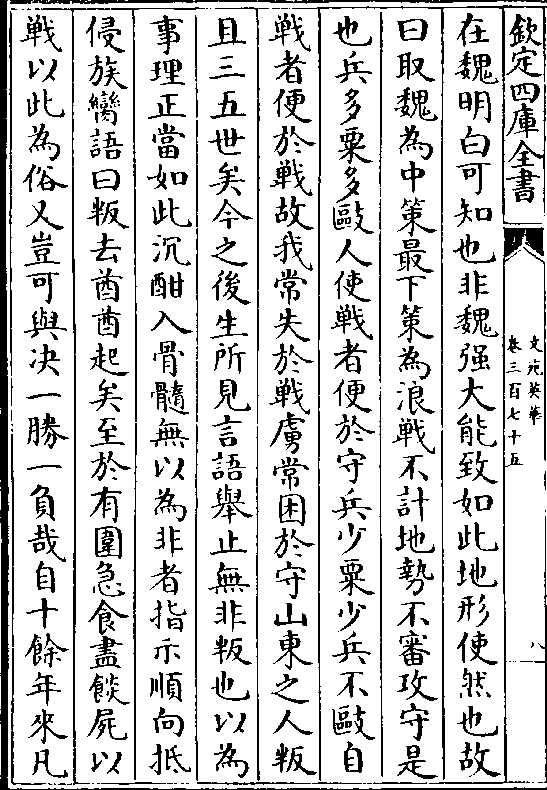 欽定四庫全書
文苑英華
卷三百七十五
八
在魏明白可知也非魏强大能致如此地形使然也故
曰取魏為中策最下策為浪戰不計地勢不審攻守是
也兵多粟多敺人使戰者便於守兵少粟少兵不敺自
戰者便於戰故我常失於戰虜常困於守山東之人叛
且三五世矣今之後生所見言語舉止無非叛也以為
事理正當如此沉酣入骨髓無以為非者指示順向抵
侵族臠語曰叛去酋酋起矣至於有圍急食盡餤屍以
戰以此為俗又豈可與决一勝一負哉自十餘年來凡